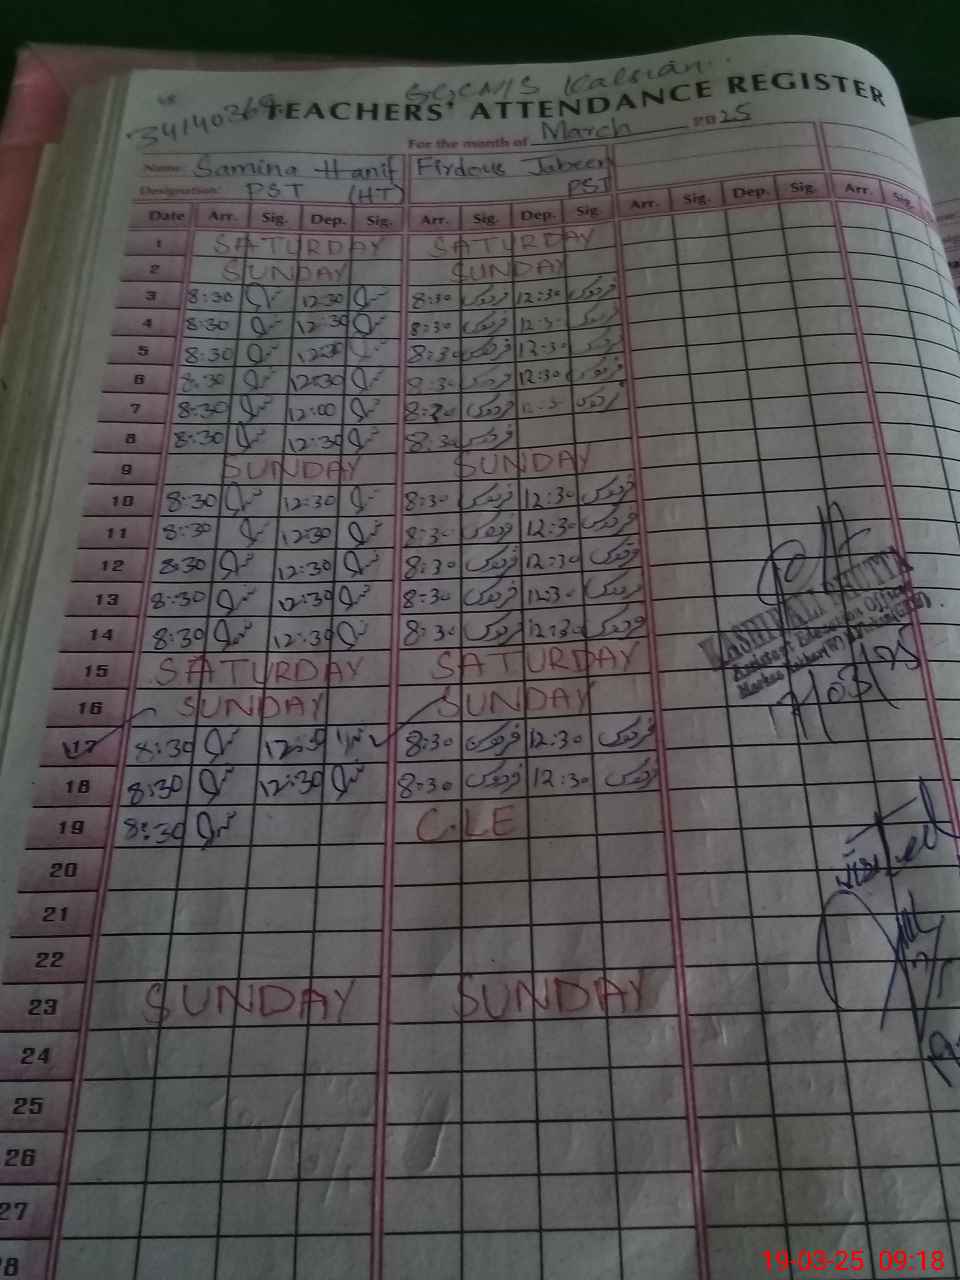 34140369
TEACHERS' ATTENDANCE REGISTER
For the month of March 2025
Name: Samina Hanif Firdous Jabeen
Designation: PST (HT) PST
Date Arr. Sig. Dep. Sig. Arr. Sig. Dep. Sig Arr. Sig. Dep. Sig. Arr. Sig.
1 SATURDAY SATURDAY
2 SUNDAY SUNDAY
3 8:30 12:30 8:30 فردوس 12:30 فردوس
4 8:30 12:30 8:30 فردوس 12:30 فردوس
5 8:30 12:30 8:30 فردوس 12:30 فردوس
6 8:30 12:30 8:30 فردوس 12:30 فردوس
7 8:30 12:00 8:30 فردوس 12:30 فردوس
8 8:30 12:30 8:30 فردوس
9 SUNDAY SUNDAY
10 8:30 12:30 8:30 فردوس 12:30 فردوس
11 8:30 12:30 8:30 فردوس 12:30 فردوس
12 8:30 12:30 8:30 فردوس 12:30 فردوس
13 8:30 12:30 8:30 فردوس 12:30 فردوس
14 8:30 12:30 8:30 فردوس 12:30 فردوس
15 SATURDAY SATURDAY
16 SUNDAY SUNDAY
17 8:30 12:30 8:30 فردوس 12:30 فردوس
18 8:30 12:30 8:30 فردوس 12:30 فردوس
19 8:30 C.LE
20
21
22
23 SUNDAY SUNDAY
24
25
26
27
28
KASHIF ALI BHUTTA
Assistant Education Officer
Visited
19-03-25 09:18